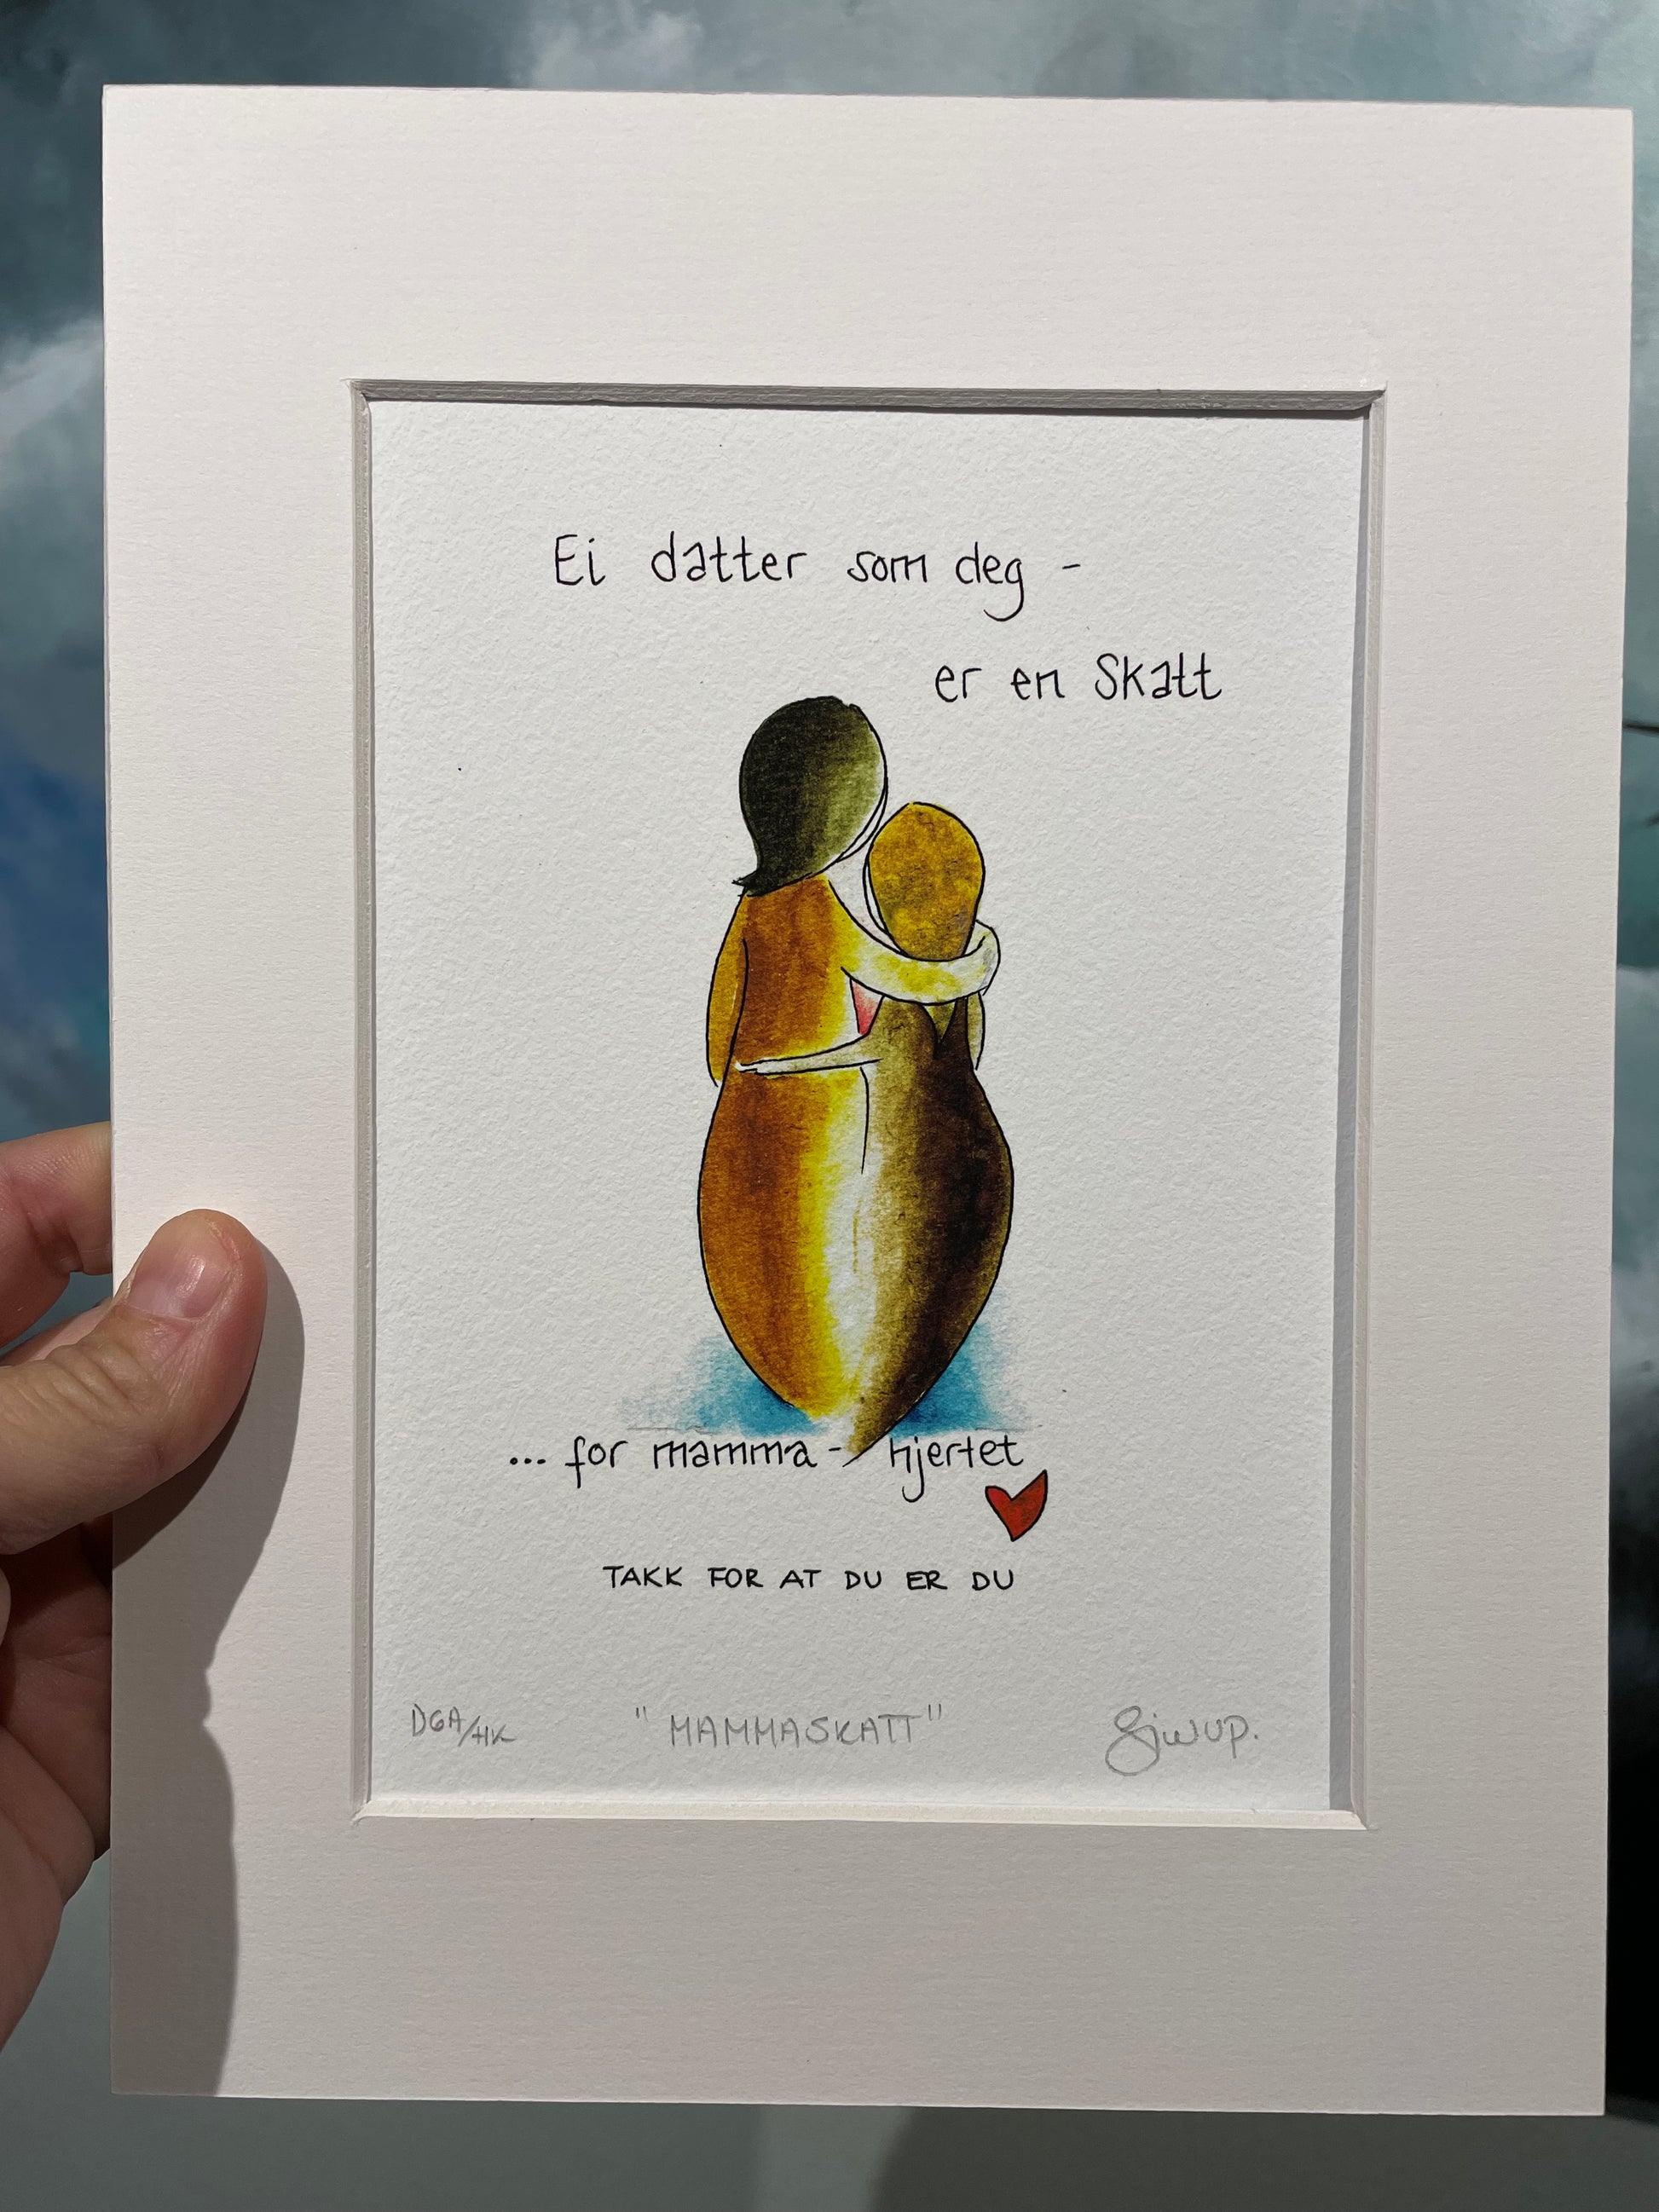 Ei datter som deg -
er en Skatt
... for mamma - hjertet
TAKK FOR AT DU ER DU
DGA/HK "MAMMASKATT"